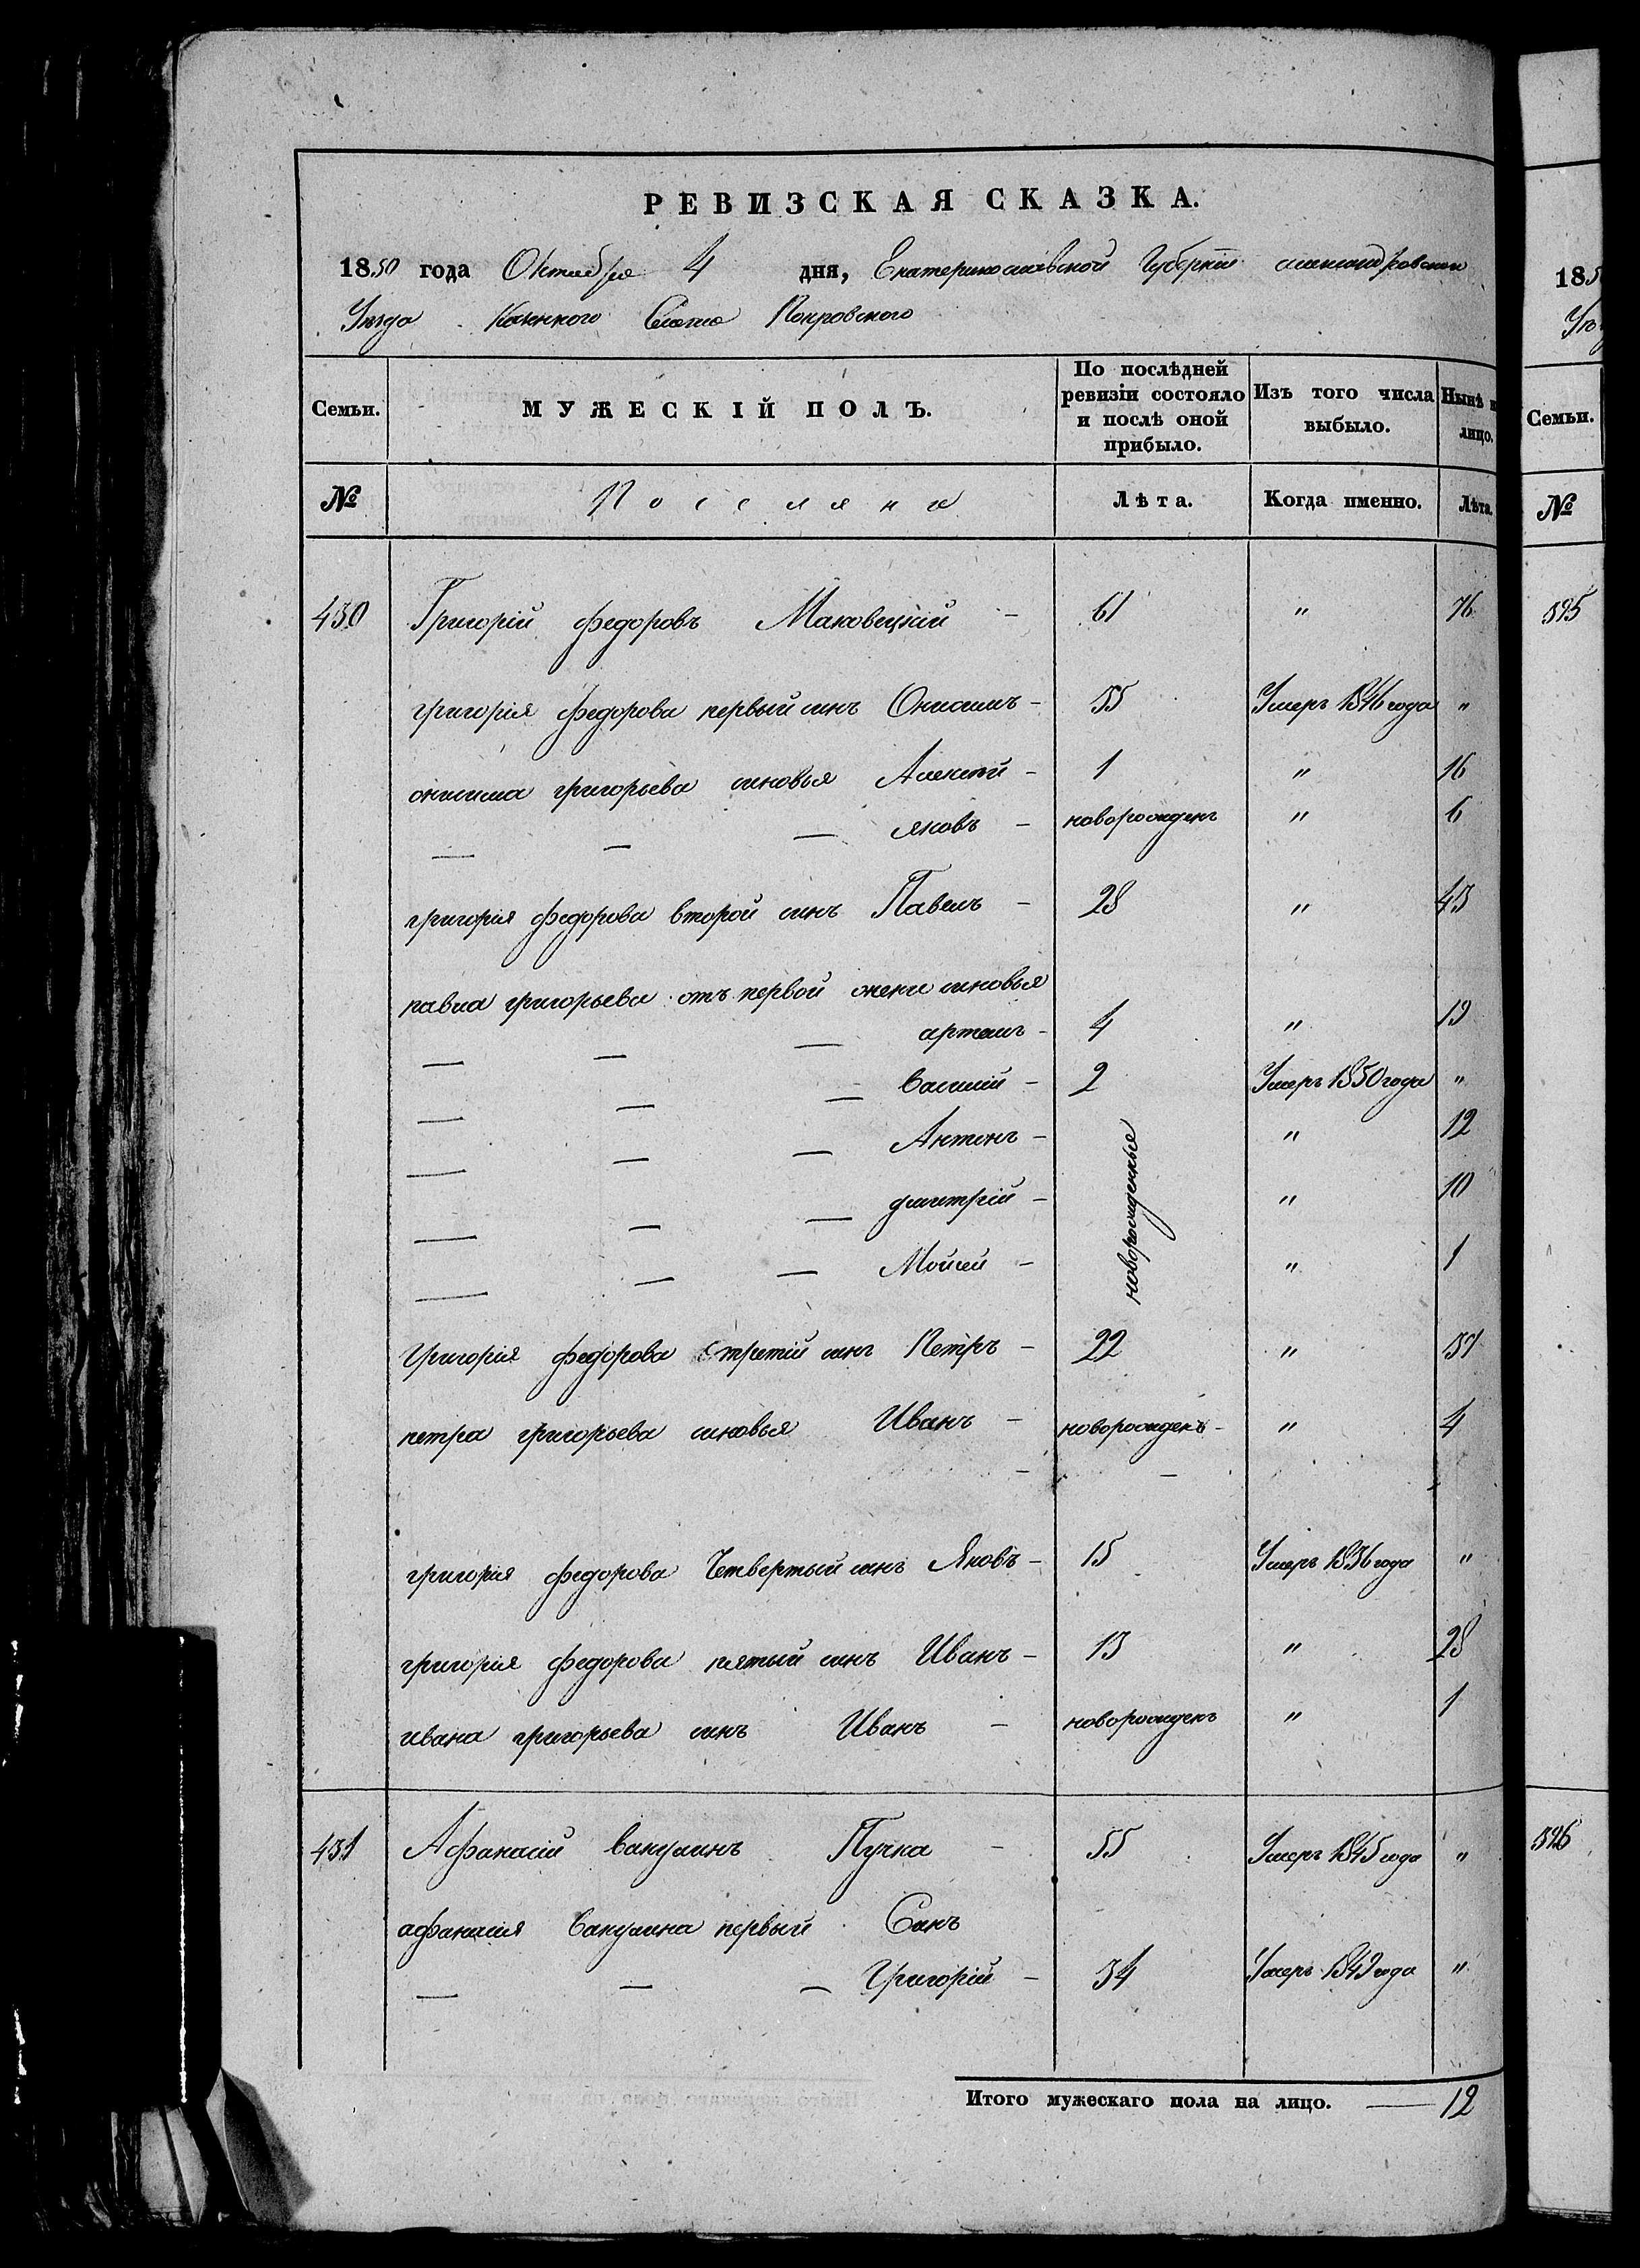 РЕВИЗСКАЯ СКАЗКА.
1850 года Октября 4 дня, Екатеринославской Губернии александровского
Уезда Казенного Селения Покровского
Семьи. МУЖЕСКІЙ ПОЛЪ. По послѣдней ревизіи состояло и послѣ оной прибыло. Изъ того числа выбыло. Нынѣ на лицо.
№ Поселяне Лѣта. Когда именно. Лѣта.
430 Григорій федоровъ Маковецкій - 61 " 76
григорія федорова первый синъ Онисимъ - 35 Умеръ 1846 года "
онисима григорьева синовья Алексѣй - 1 " 16
— — — яковъ - новорожденъ " 6
григория федорова второй синъ Павелъ - 28 " 43
павла григорьева отъ первой жени синовья
— — — артемъ - 4 " 19
— — — василий - 2 Умеръ 1850 года "
— — — Антонъ - новорожденные " 12
— — — дмитрій - " 10
— — — Мойсей - " 1
григорія федорова третій синъ Петръ - 22 " 37
петра григорьева синовья Иванъ - новорожденъ - " 4
григорія федорова Четвертый синъ Яковъ - 15 Умеръ 1836 года "
григорія федорова пятый синъ Иванъ - 13 " 28
ивана григорьева синъ Иванъ - новорожденъ " 1
431 Афанасій вакулинъ Пучка - 55 Умеръ 1845 года "
афанасия Вакулина первый Синъ
— — — Григорій - 34 Умеръ 1849 года "
Итого мужескаго пола на лицо. — 12
185
Семьи.
№